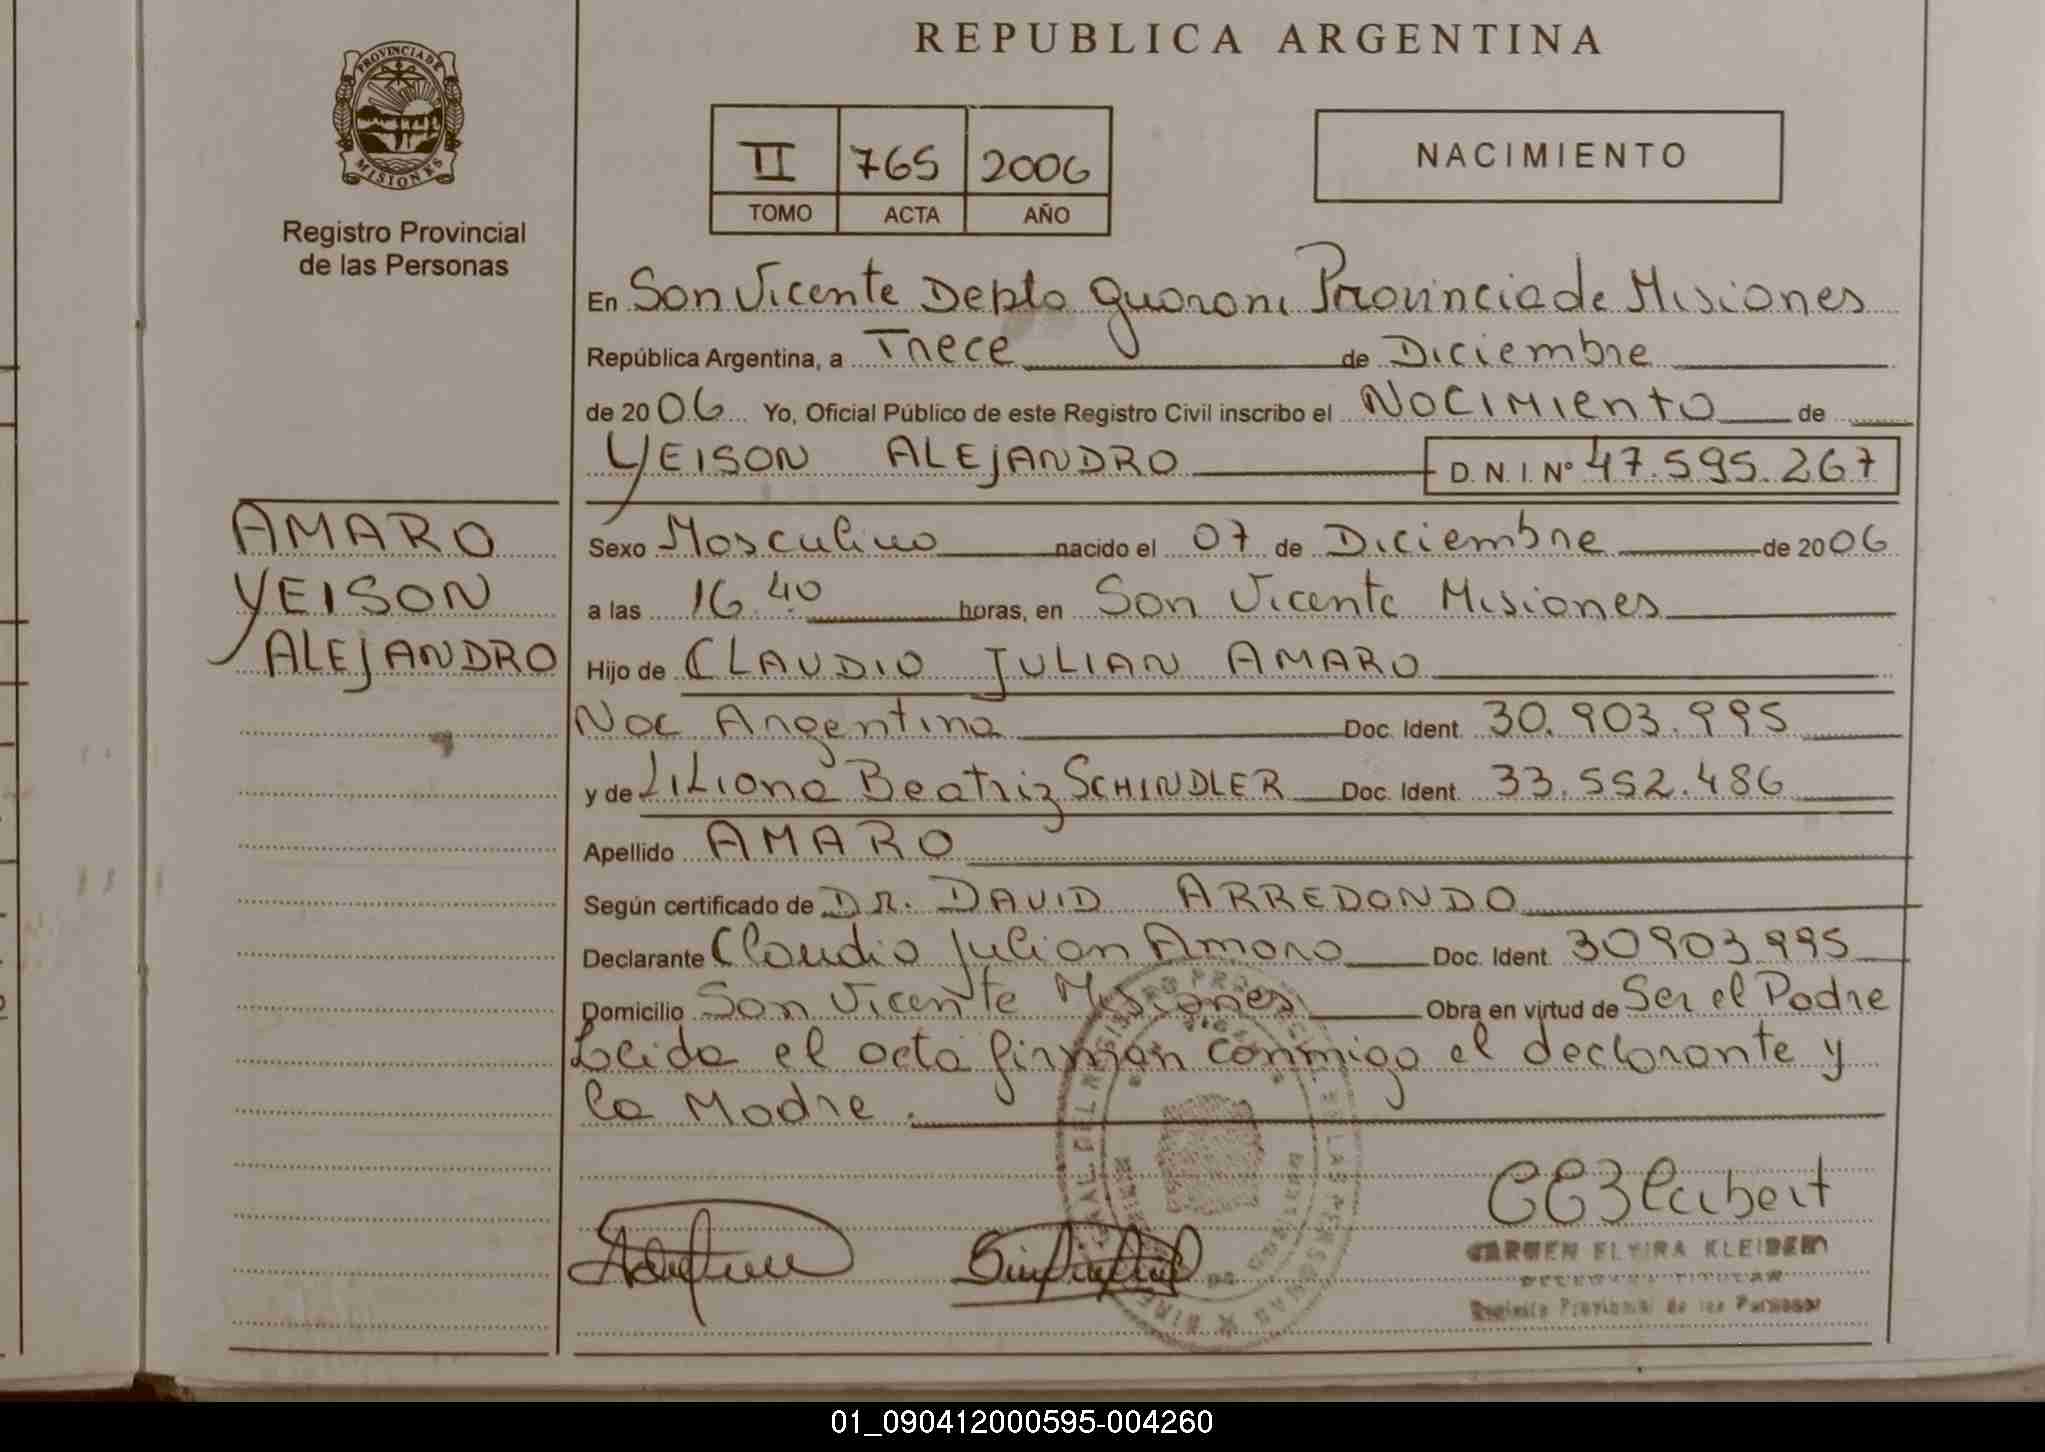 REPUBLICA ARGENTINA
PROVINCIA DE MISIONES
Registro Provincial
de las Personas
II 765 2006
TOMO ACTA AÑO
NACIMIENTO
En San Vicente Depto Guarani Provincia de Misiones
República Argentina, a Trece de Diciembre
de 2006 Yo, Oficial Público de este Registro Civil inscribo el Nacimiento de
YEISON ALEJANDRO D.N.I. Nº 47.595.267
AMARO
YEISON
ALEJANDRO
Sexo Masculino nacido el 07 de Diciembre de 2006
a las 16.40 horas, en San Vicente Misiones
Hijo de CLAUDIO JULIAN AMARO
Nac Argentina Doc. Ident. 30.903.995
y de Liliana Beatriz SCHINDLER Doc. Ident. 33.552.486
Apellido AMARO
Según certificado de DR. DAVID ARREDONDO
Declarante Claudio Julian Amaro Doc. Ident. 30903995
Domicilio San Vicente Misiones Obra en virtud de Ser el Padre
Leida el acta firman conmigo el declarante y
la Madre.
CARMEN ELVIRA KLEIBERT
Registro Provincial de las Personas
01_090412000595-004260